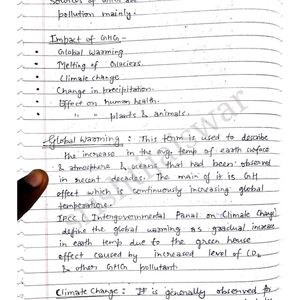 sources of which are
pollution mainly.
Impact of GHG -
• Global warming
• Melting of Glaciers.
• Climate change
• Change in precipitation.
• Effect on human health.
• " " plants & animals.
Global Warming : This term is used to describe
the increase in the avg. temp of earth surface
& atmosphere & oceans that had been observed
in recent decades. The main of it is GH
effect which is continuously increasing global
temperature.
IPCC (Intergovernmental Panal on Climate Change)
define the global warming as gradual increase
in earth temp due to the green house
effect caused by increased level of CO2
& other GHG pollutant.
Climate Change : It is generally observed for